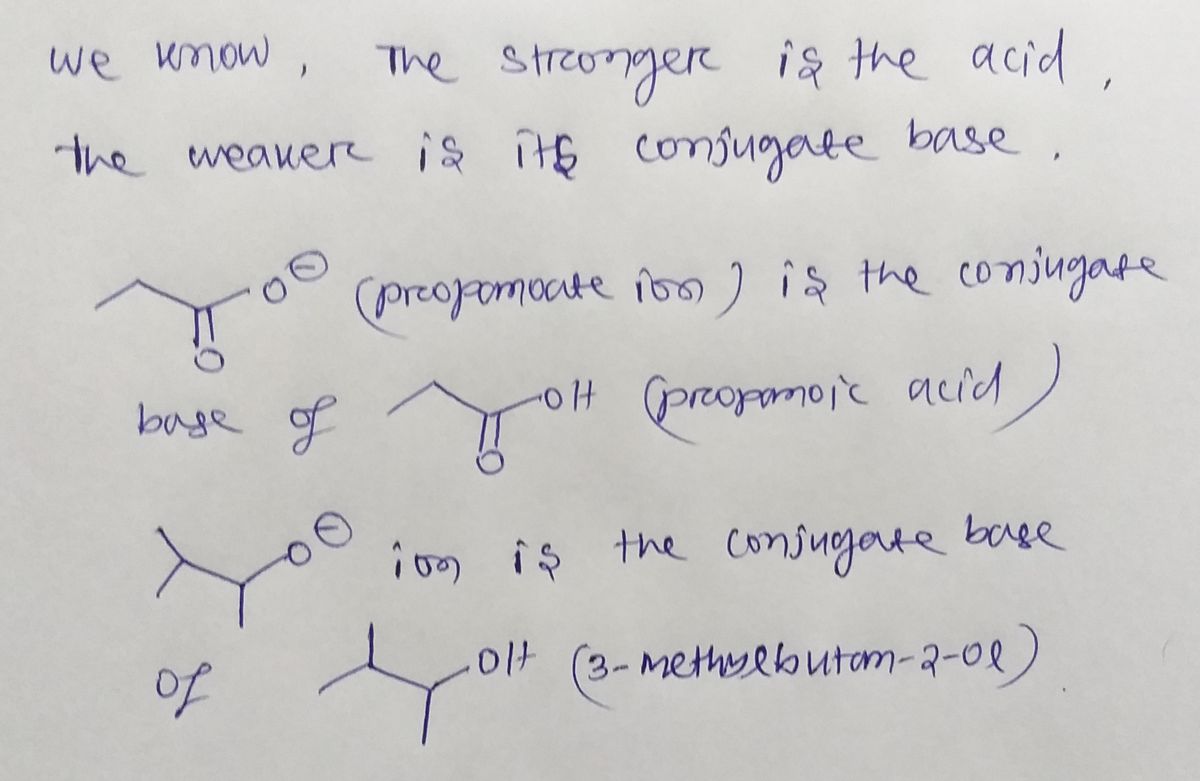 we know, The stronger is the acid,
the weaker is its conjugate base.
O⊖ (propanoate ion) is the conjugate
O
base of OH (propanoic acid)
O
O⊖ ion is the conjugate base
of OH (3-methylbutan-2-ol).